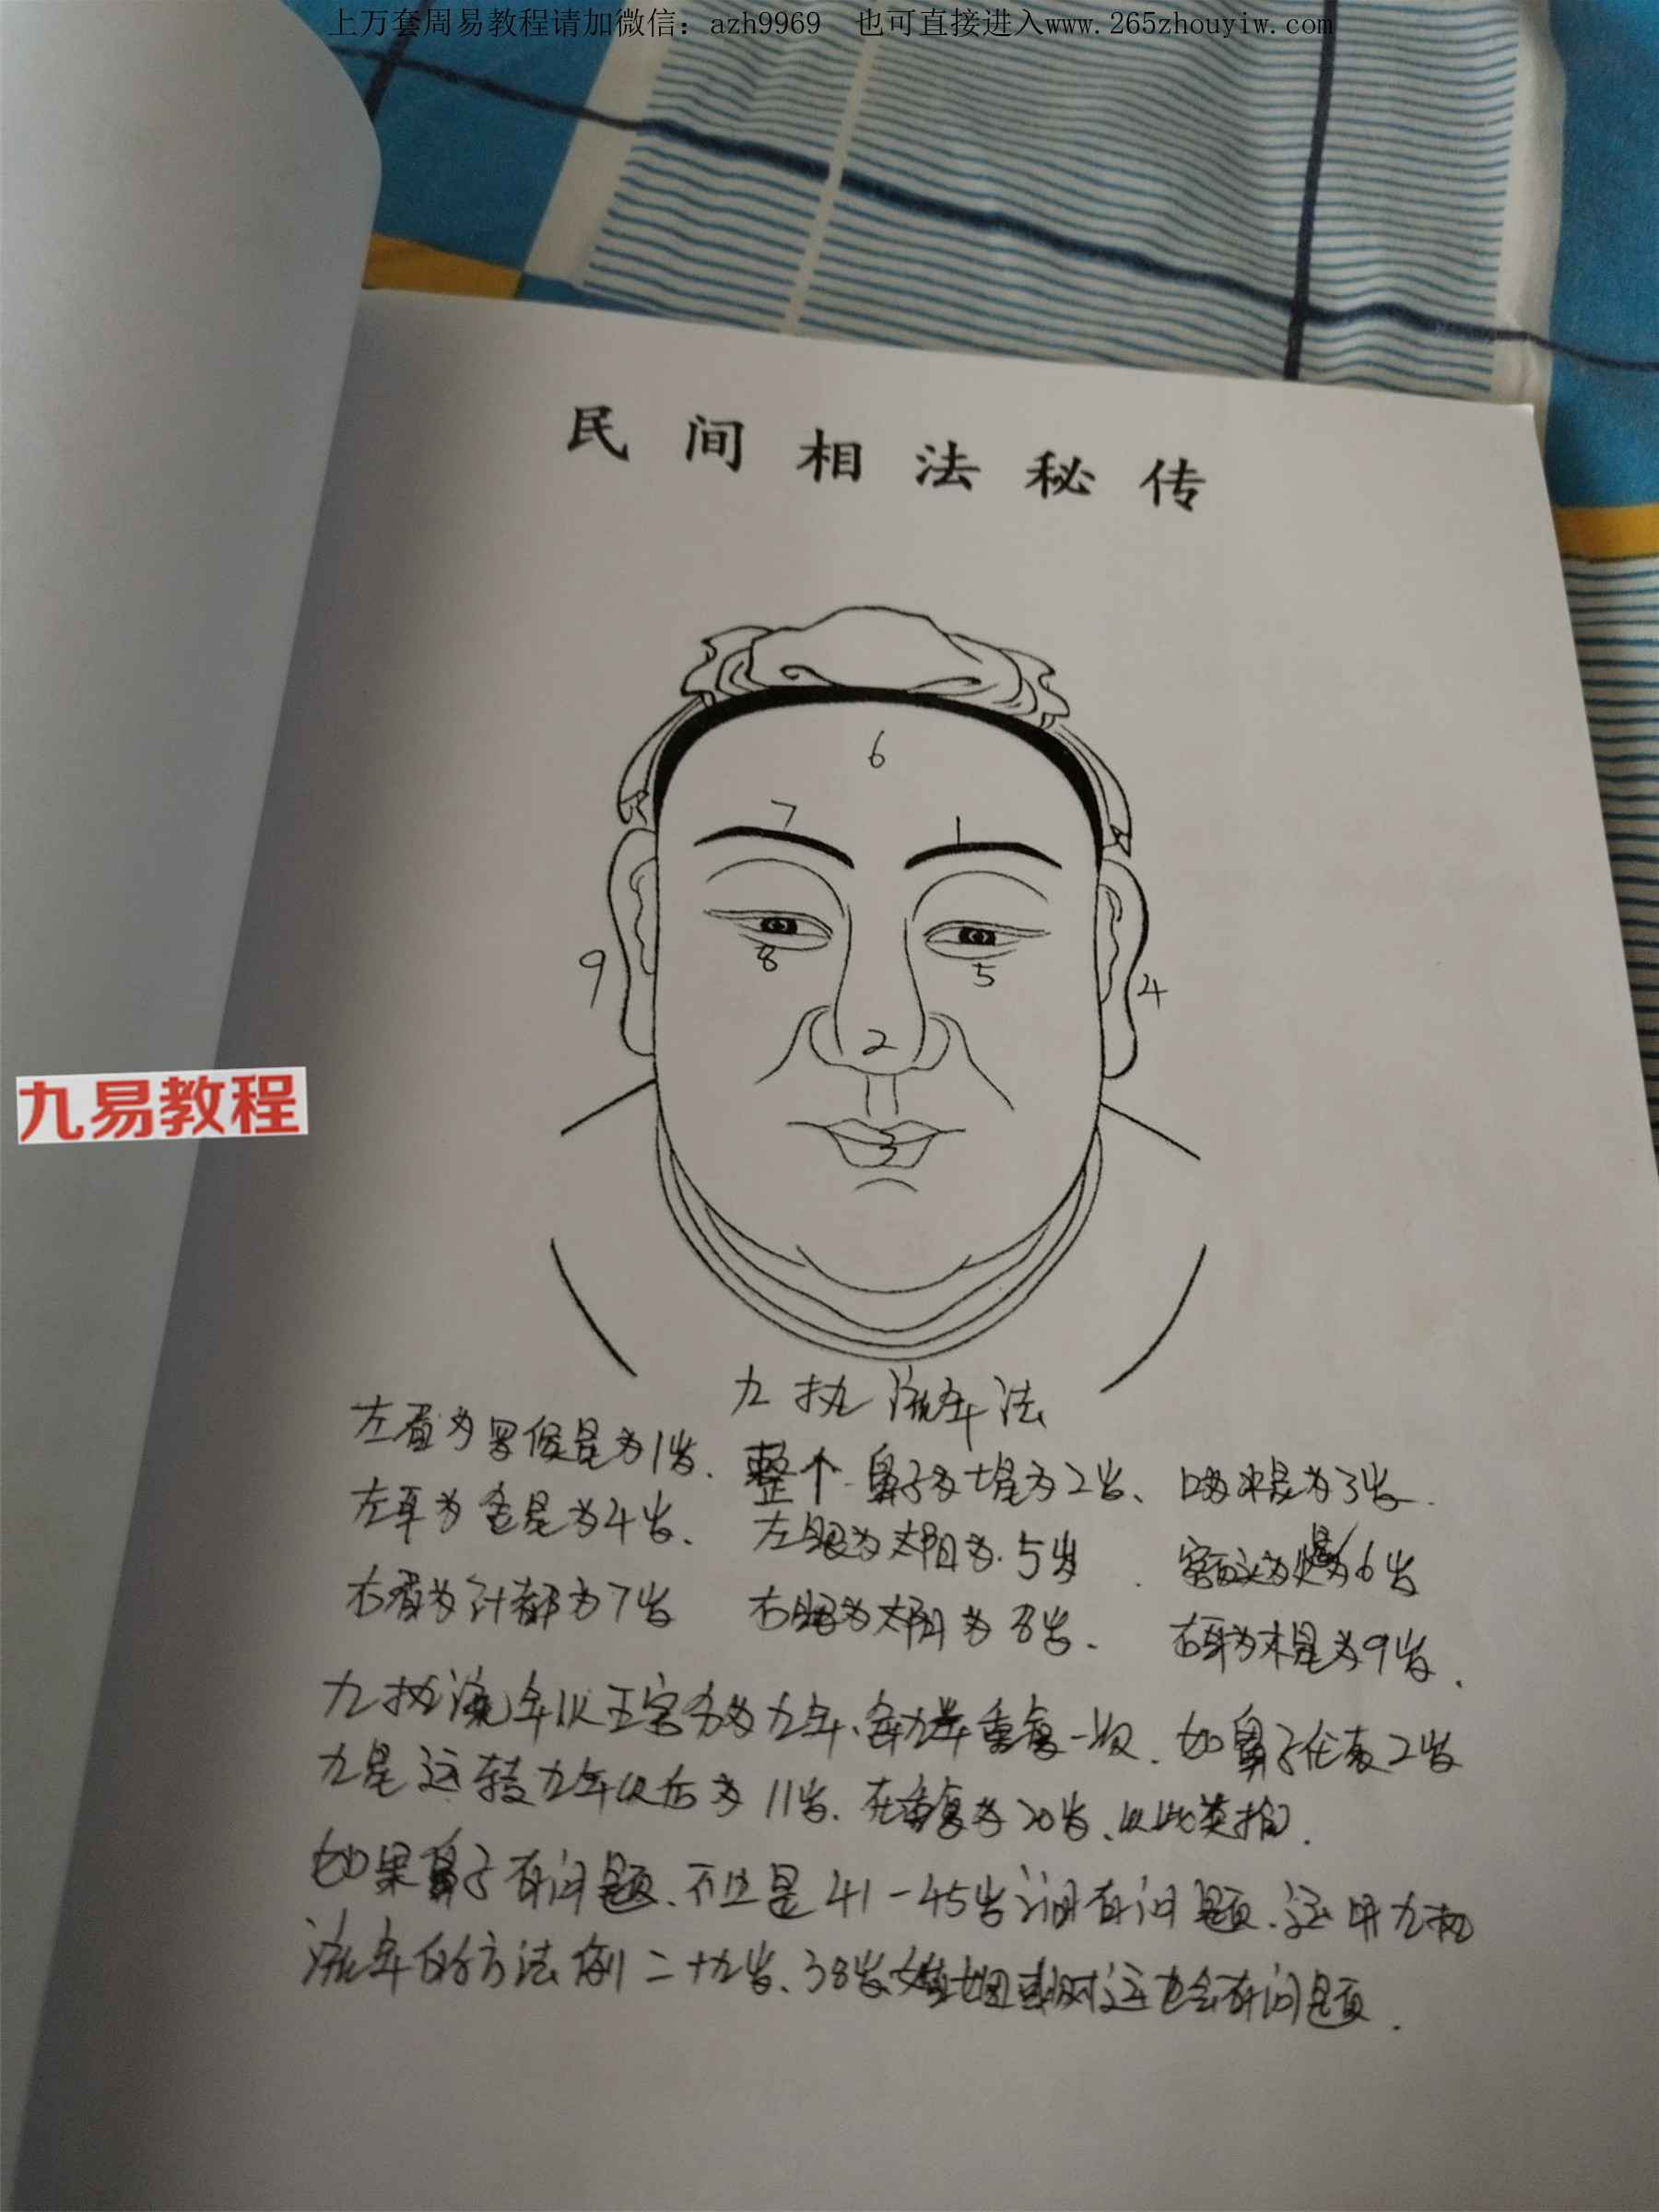 上万套周易教程请加微信：azh9969 也可直接进入www.265zhouyiw.com
民间相法秘传
6
7 1
8 5
9 4
2
3
九易教程
九执流年法
左眉为罗侯星为1岁、整个鼻子为土星为2岁、口为水星为3岁.
左耳为金星为4岁、左眼为太阳为5岁. 额头为火星为6岁
右眉为计都为7岁 右眼为太阴为8岁、右耳为木星为9岁.
九执流年以五官分为九年、每九年重复一次. 如鼻子代表2岁
九星运转九年以后为11岁. 在重复为20岁、以此类推.
如果鼻子有问题、不止是41-45岁间有问题、还用九执
流年的方法例二十九岁、38岁婚姻或财运也会有问题.